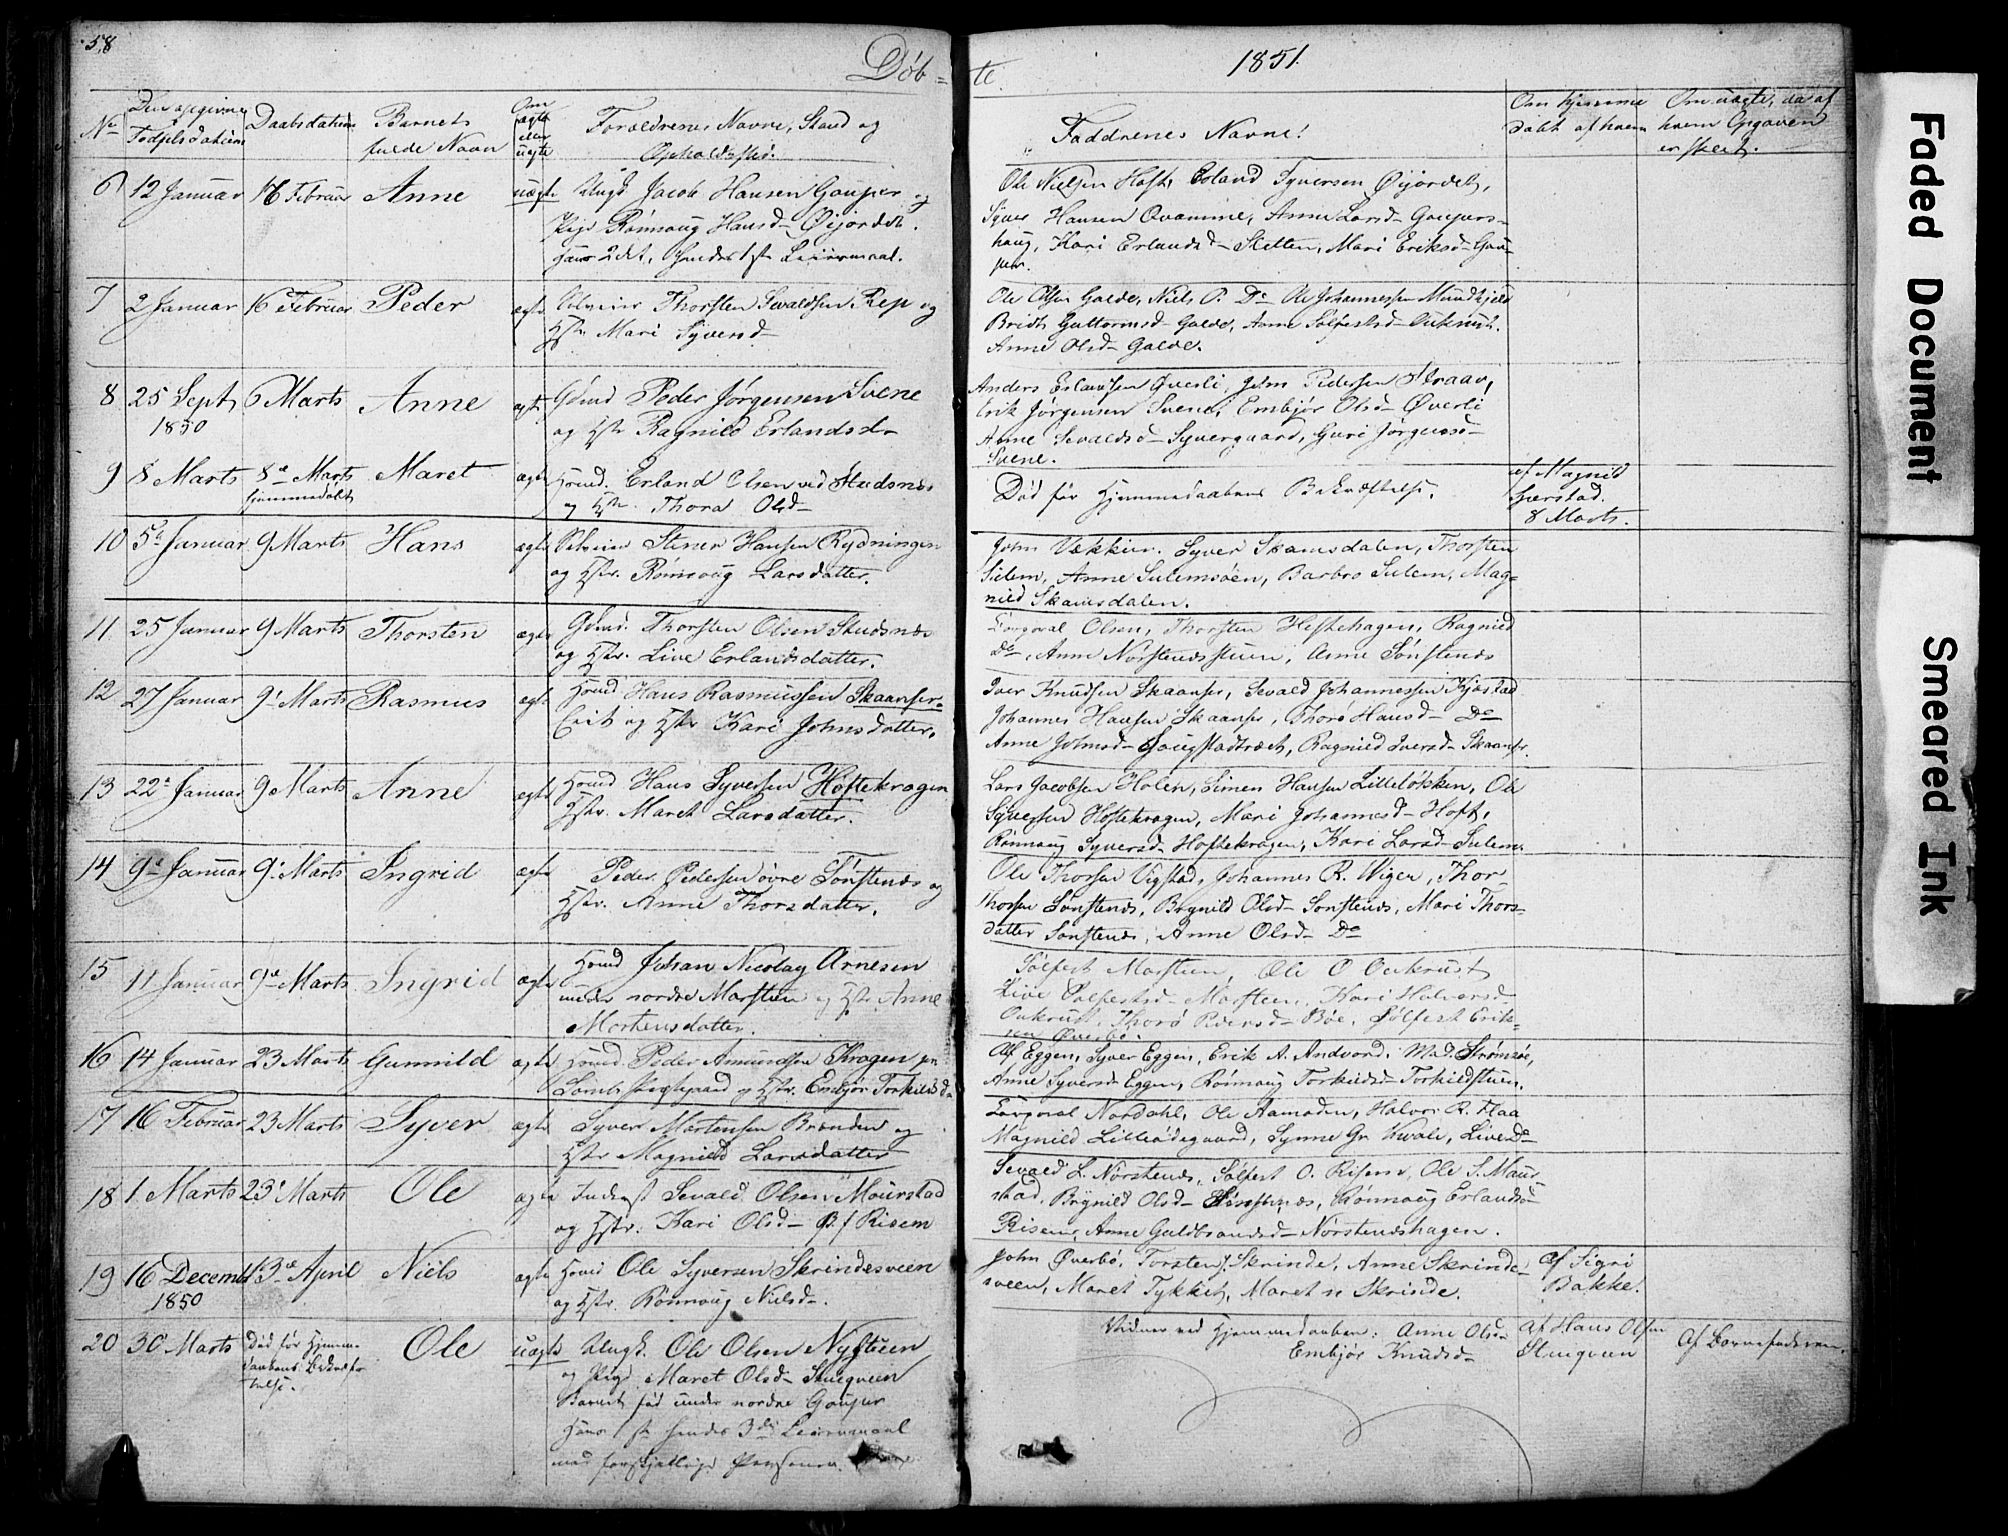 58
Døb=
te.
1851.
No
Den opgivne
Fødselsdatum
Daabsdatum
Barnets
fulde Navn
Om
ægte
eller
uægte
Forældrenes Navne, Stand og
Opholdssted.
Faddrenes Navne.
Om hjemme
døbt af hvem
Om uægte, da af
hvem Opgaven
er skeet.
6 12 Januar 16 Februar Anne uægte Ungk. Jacob Hansen Gaupar og
Pige Rønnoug Hansd– Øijordet.
Hans 2det, hendes 1ste Leiermaal.
Ole Nielsen Hoft, Erland Syversen Øijordet,
Syver Hansen Qvamme, Anne Larsd– Gaupers-
haug, Kari Erlandsd– Sletten, Mari Eriksd– Gau-
per.
7 2 Januar 16 Februar Peder ægte Thorsten Sevaldsen Rep og
Hstr. Mari Syversd–
Ole Olsen Galde, Niels P. Do Ole Johannessen
Bridt Guttormsd– Galde, Anne Sølfestsd– Aukrust.
Anne Olsd– Galde.
8 25 Sept 6 Marts Anne ægte Gdmd Peder Jørgensen Svene
1850
og Hstr Ragnild Erlandsd–
Anders Erlandsen Øverli, John Pedersen
Erik Jørgensen Svene, Embjør Olsd– Øverli
Anne Sevaldsd– Syvergaard, Guri Jørgensd–
Svene.
9 8 Marts 8de Marts Maret ægte Huusd. Erland Olsen ved Studsnæs
hjemmedøbt
og Hstr. Thora Olsd–
Død før Hjemmedaabens Bekræftelse.
af Magnild
8 Marts.
10 5te Januar 9 Marts Hans ægte Stener Hansen Rydningen
og Hstr. Rønnoug Larsdatter.
John Vækkien. Syver Skamsdalen, Thorsten
Sulem, Anne Sulemsøen, Barbro Sulem, Mag-
nild Skamsdalen.
11 25 Januar 9 Marts Thorsten ægte Gdmd. Thorsten Olsen Studsnæs
og Hstr. Live Erlandsdatter.
Torgval Olsen, Thorsten Heftehagen, Ragnild
Do, Anne Nørstenæsstuen, Anne Sønstenæs
12 27 Januar 9de Marts Rasmus ægte Huusd Hans Rasmussen Skaanser
Erik og Hstr Kari Johnsdatter.
Iver Knudsen Skaanser, Sevald Johannessen Kjæstad
Johannes Hansen Skaanser, Thorø Hansd– Do
Anne Johnsd– Ragnild Iversd– Skaanser.
13 22de Januar 9 Marts Anne ægte Huusd Hans Syversen Høftekragen
Hstr. Maret Larsdatter.
Lars Jacobsen Holen, Simen Hansen Lilleløkken, Ole
Syversen Høftekragen, Mari Johannesd– Hoft,
Rønnoug Syversd– Høftekragen, Kari Larsd– Sulem.
14 9de Januar 9de Marts Ingrid ægte Peder Pedersen øvre Sønstenæs og
Hstr. Anne Thorsdatter.
Ole Thorsen Vigstad, Johannes R. Wigen, Thor
Thorsen Sønstenæs, Brynild Olsd– Sønstenæs, Mari Thors-
datter Sønstenæs, Anne Olsd– Do
15 11 Januar 9de Marts Ingrid ægte Huusd Johan Nicolay Arnesen
under nordre Marsteen og Hstr Anne
Mortensdatter.
Sølfest Marsteen, Ole O Aukrust
Live Sølfestsd– Marsteen, Kari Halvorsd–
Aukrust, Thorø Pedersd– Bøe, Sølfest Erik-
sen Øverbø.
16 14 Januar 23 Marts Gunnild ægte Huusd. Peder Amundsen Kragen pn
Loms Præstegaard og Hstr. Embjør Torkildsd–
Af Eggen, Syver Eggen, Erik A. Andvord. Mad. Strømsøe,
Anne Syversd– Eggen, Rønnoug Torkildsd– Torkildstuen.
17 16 Februar 23 Marts Syver ægte Syver Mortensen Brænden og
Hstr Magnild Larsdatter
Torgval Nordahl, Ole Aamoden, Halvor R. Flaa
Magnild Lilleødegaard, Synne Gr. Kvale, Live Do
18 1. Marts 23de Marts Ole ægte Inderst Sevald Olsen Mourstad
og Hstr. Kari Olsd– Risem
Sevald L. Nørstenæs, Sølfest O. Risem, Ole S. Maur-
stad, Brynild Olsd– Sønstenæs, Rønnoug Erlandsd–
Risem, Anne Guldbrandsd– Nørstenæshagen.
19 16 Decembr 13de April Niels ægte Huusd Ole Syversen Skrindesveen
1850
og Hstr. Rønnoug Nielsd–.
John Øverbø, Torsten J. Skrinde, Anne Skrinde-
sveen, Maret Tykket, Maret n Skrinde.
af Sigri
Bakke.
20 30 Marts Død før Hjemme-
daabens Bekræf-
telse.
Ole uægte Ungk. Ole Olsen Nystuen
og Pige Maret Olsd– Stuegveen
Barnet fød under nordre Gauper
Hans 1ste hendes 3die Leiermaal
med forskjellige Personer.
Vidner ved Hjemmedaaben: Anne Olsd–
Embjør Knudsd–
af Hans Olsen
Stuegveen
Af Barnefaderen.
Faded Document
Smeared Ink